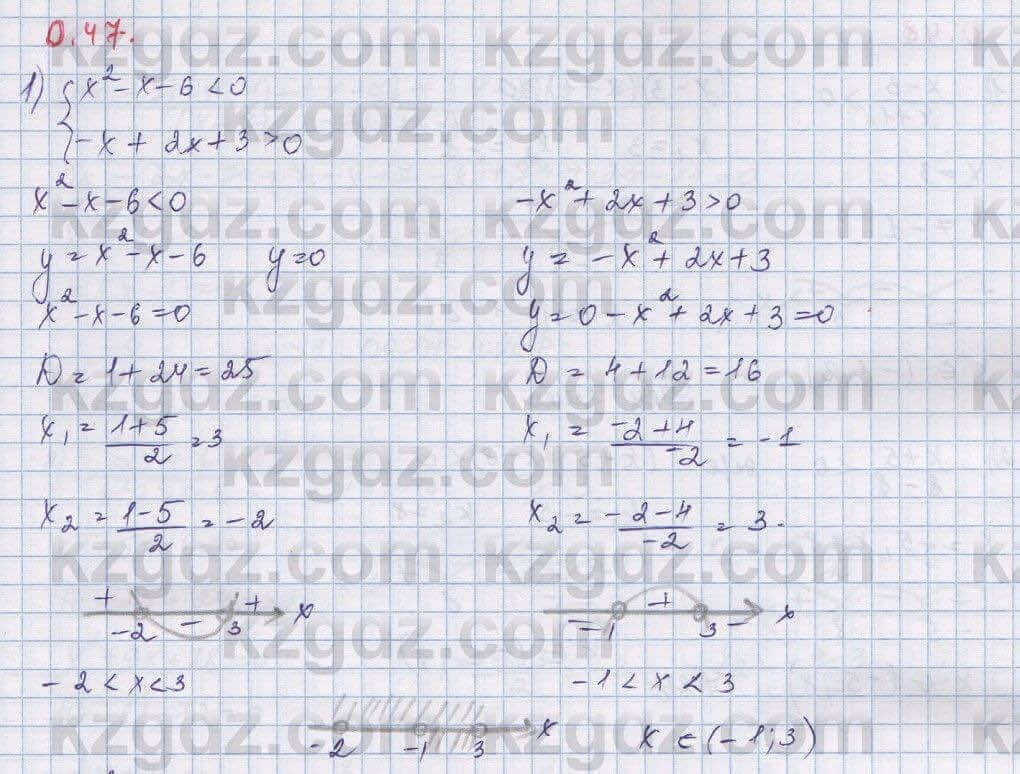 0.47.
1) { x² - x - 6 < 0
{ -x + 2x + 3 > 0
x² - x - 6 < 0
y = x² - x - 6 y = 0
x² - x - 6 = 0
D = 1 + 24 = 25
x₁ = (1+5)/2 = 3
x₂ = (1-5)/2 = -2
+ - + x
-2 3
-2 < x < 3
-x² + 2x + 3 > 0
y = -x² + 2x + 3
y = 0 -x² + 2x + 3 = 0
D = 4 + 12 = 16
x₁ = (-2+4)/-2 = -1
x₂ = (-2-4)/-2 = 3.
- + - x
-1 3
-1 < x < 3
-2 -1 3 x
x ∈ (-1; 3)
kzgdz.com